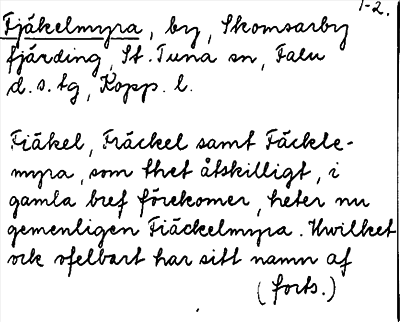 1-2.
Fjäkelmyra, by, Skomsarby
fjärding, St. Tuna sn, Falu
d.s. tg, Kopp. l.
Fiäkel, Fräckel samt Fäckle-
myra, som thet åtskilligt, i
gamla bref förekomer, heter nu
gemenligen Fiäckelmyra. Hwilket
ock ofelbart har sitt namn af
(forts.)